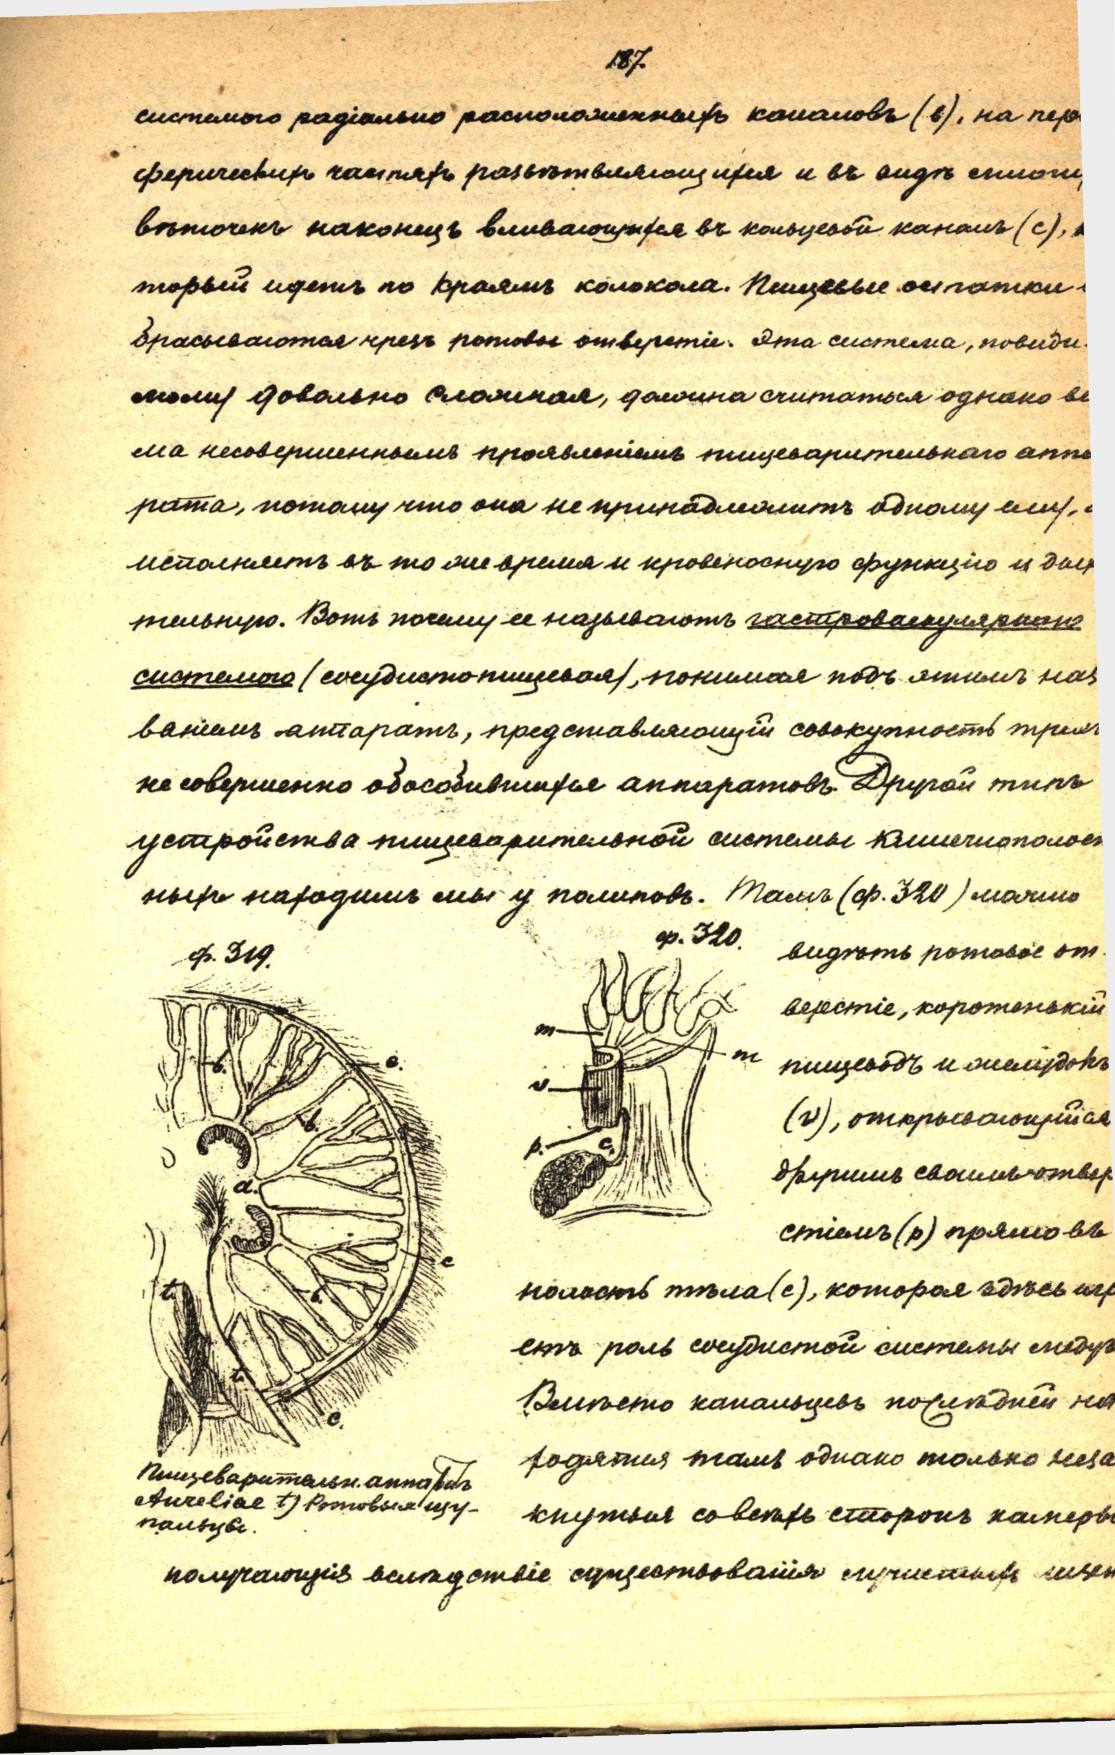 187.
системою радіально расположенныхъ каналовъ (в), на пери
ферическихъ частяхъ развѣтвляющихся и въ видѣ
вѣточекъ наконецъ вливающихся въ кольцевой каналъ (с),
торый идетъ по краямъ колокола. Пищевые остатки
брасываются чрезъ ротовое отверстіе. Эта система, повиди-
мому довольно сложная, должна считаться однако ве
ма несовершеннымъ проявленіемъ пищеварительнаго аппа
рата, потому что она не принадлежитъ одному ему,
исполняетъ въ то же время и кровеносную функцію и дыха
тельную. Вотъ почему ее называютъ гастроваскулярною
системою (сосудистопищевая), понимая подъ этимъ наз
ваніемъ аппаратъ, представляющій совокупность трехъ
несовершенно обособившихся аппаратовъ. Другой типъ
устройства пищеварительной системы кишечнополост
ныхъ находимъ мы у полиповъ. Тамъ (ф. 320) можно
ф. 319.
ф. 320.
видѣть ротовое от-
верстіе, коротенькій
пищеводъ и желудокъ
(v), открывающійся
другимъ своимъ отвер
стіемъ (p) прямо въ
полость тѣла (с), которая здѣсь игра
етъ роль сосудистой системы медузъ
Вмѣсто канальцевъ послѣдней на
ходятся тамъ однако только неза
кнутыя со всѣхъ сторонъ камеры
получающія вслѣдствіе существованія лучистыхъ
m
m
v
p.
c.
в.
e.
в.
a.
c
в.
t.
t.
c.
Пищеварительн. аппаратъ
Aureliae t) Ротовыя щу-
пальцы.